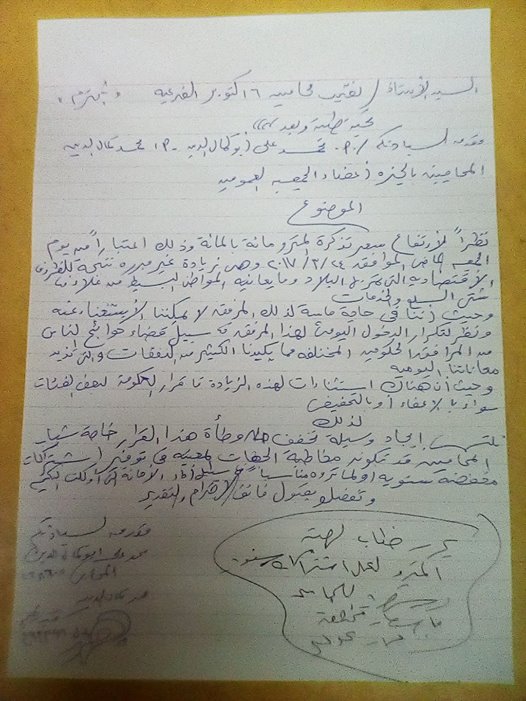 السيد الأستاذ / نقيب محامين ٦ اكتوبر الفرعية
تحية طيبة وبعد ،،،
مقدمه لسيادتكم / محمد على ابو كمال الدين - محمد كمال الدين
المحاميين بالجيزه أعضاء الجمعية العمومية
الموضوع
نظراً لارتفاع سعر تذكرة المترو مائة بالمائة وذلك اعتباراً من يوم
الجمعه الماضى الموافق ٢٠١٧/٣/٢٤ وهى زيادة غير مبرره نتيجة للظروف
الاقتصادية التى تمر بها البلاد وما يعانيه المواطن البسيط من غلاء فى
شتى السلع والخدمات
وحيث أننا فى حاجة ماسة لذلك المرفق لا يمكننا الاستغناء عنه
ونظر لتكرار الدخول اليومى لهذا المرفق فى سبيل قضاء حوائج الناس
من المرافق الحكوميه المختلفه مما يكبدنا الكثير من النفقات والتى تزيد
معاناتنا اليوميه
وحيث أن هناك استثناءات لهذه الزيادة من قرار الحكومة لبعض الفئات
سواء بالاعفاء أو بالتخفيض
لذلك
نلتمس إيجاد وسيلة تخفف من وطأة هذا القرار خاصة شباب
المحامين قد تكون مخاطبة الجهات المعنيه فى توفير اشتراكات
مخفضة سنويه او لما تروه مناسباً فى سبيل أداء الامانة التى أوكلت اليكم
وتفضلوا بقبول فائق الاحترام والتقدير
مقدمه لسيادتكم
محمد على ابو كمال الدين
المحامى
يحرر خطاب لهيئة
المترو لعمل اشتراكات سنوية